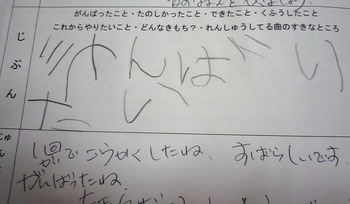 がんばったこと・たのしかったこと・できたこと・くふうしたこと
これからやりたいこと・どんなきもち？・れんしゅうしてる曲のすきなところ
じぶん
がんばり
たい
県でごうかくしたね、すばらしいです
がんばったね